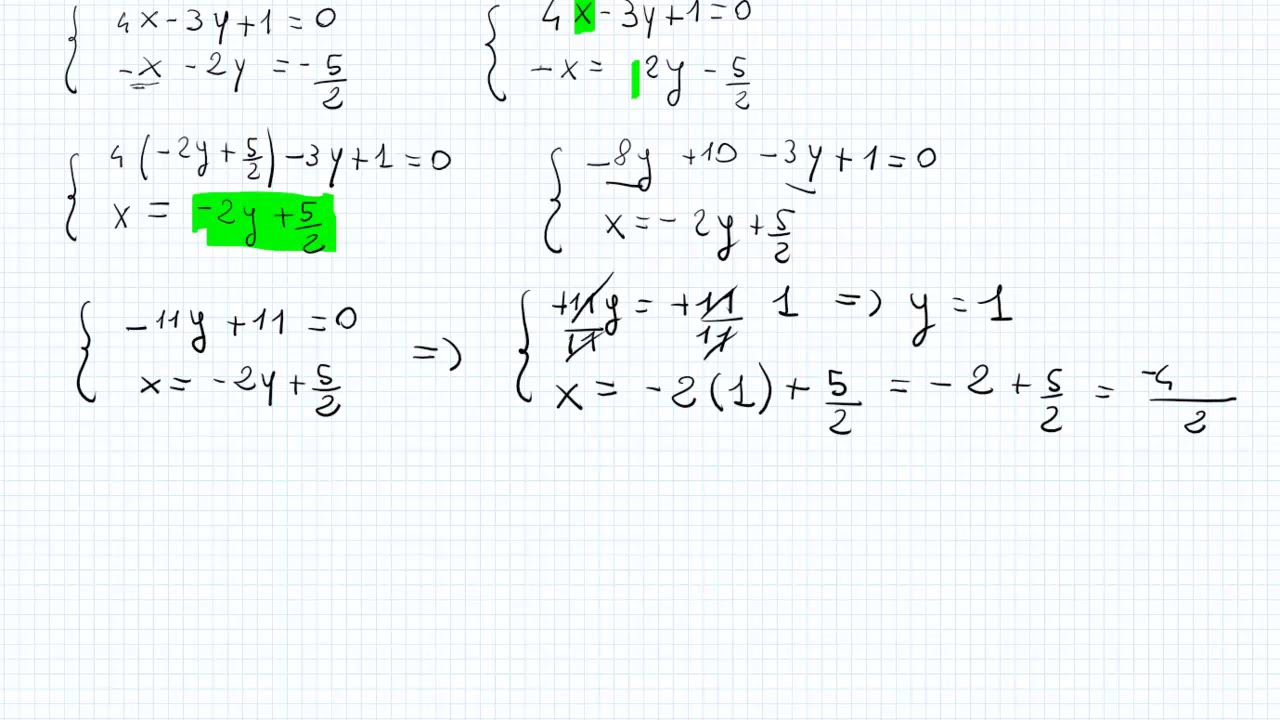 4x - 3y + 1 = 0
-x - 2y = - 5/2
4x - 3y + 1 = 0
-x = 2y - 5/2
4(-2y + 5/2) - 3y + 1 = 0
x = -2y + 5/2
-8y +10 - 3y + 1 = 0
x = - 2y + 5/2
-11y + 11 = 0
x = -2y + 5/2
=>
+11y/11 = +11/11 1 => y = 1
x = -2(1) + 5/2 = -2 + 5/2 = -4/2